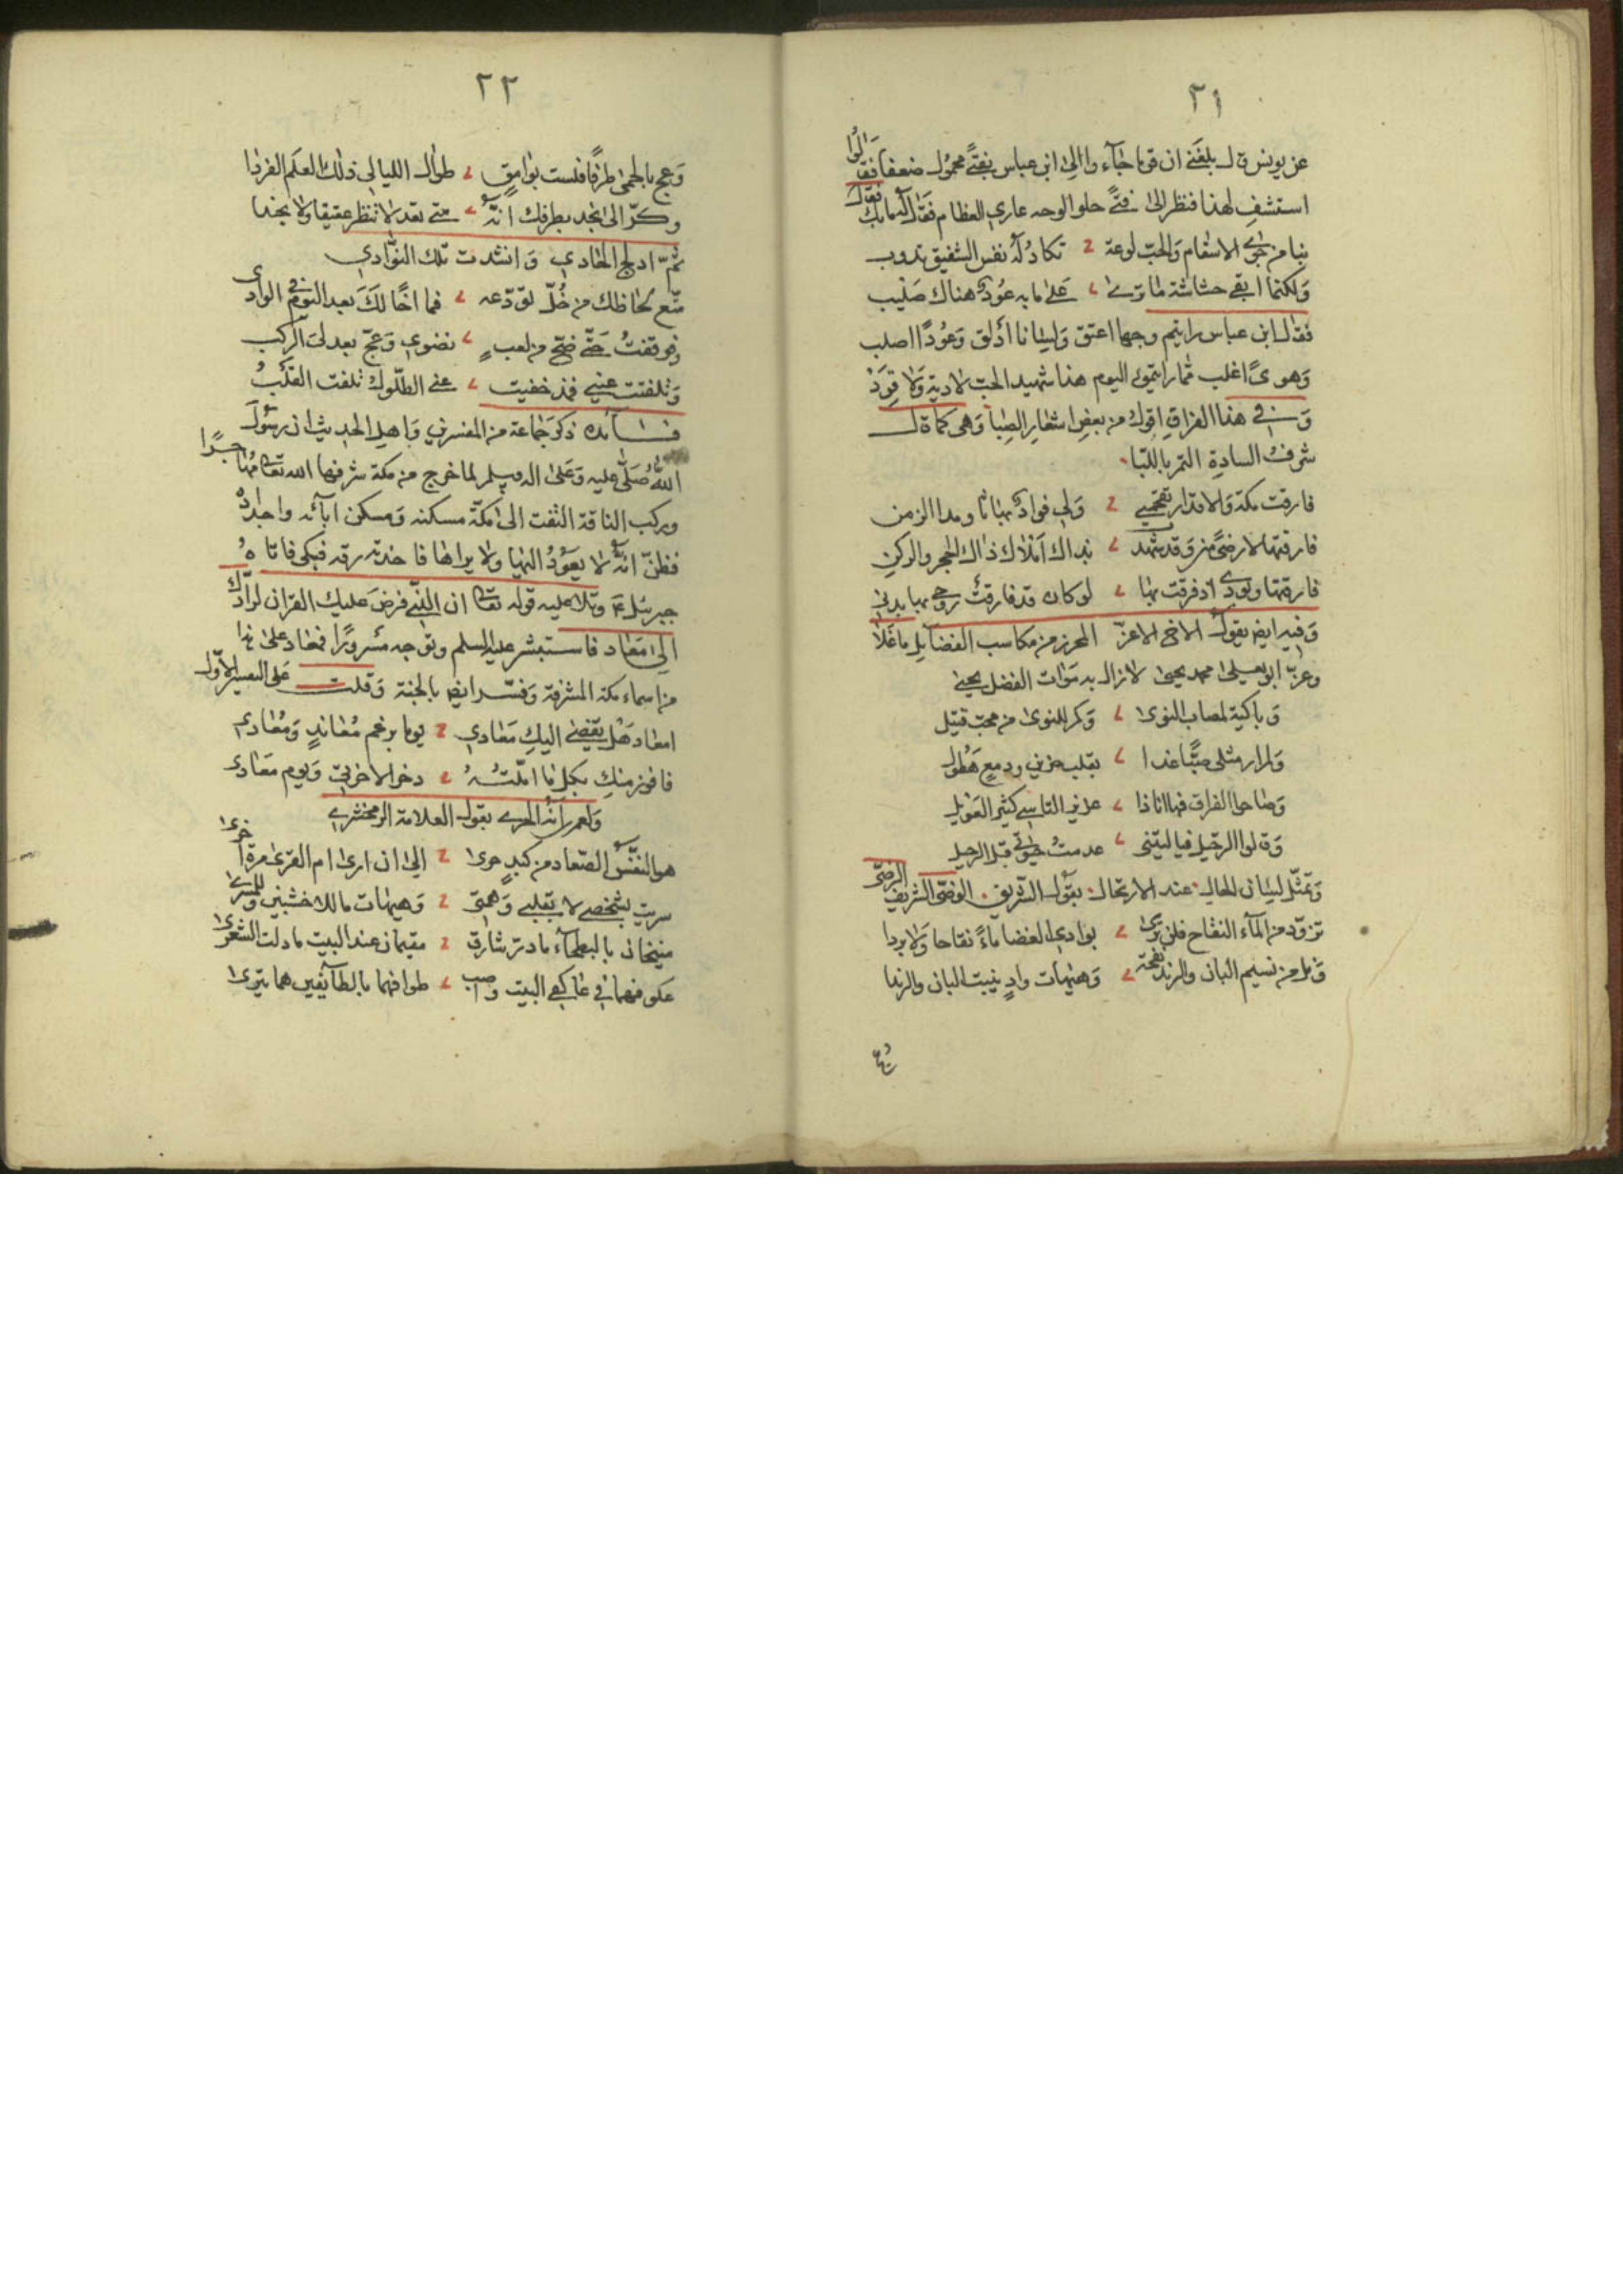 ٢١
عن يونس قال بلغني ان قوما جاءوا الى ابن عباس بفتًى محمول ضعفا فقالوا
استشف لهذا فنظر الى فتًى حلو الوجه عاري العظام فقال له مابك فقال
بنا من جوى الاسقام والحب لوعة تكاد له نفس الشفيق تذوب
ولكنما ابقى حشاشة ما ترى على ما به عود هناك صليب
فقال ابن عباس رايتم وجها اعتق ولسانا اذلق وعودا اصلب
وهوىً اغلب مما رايتموه اليوم هذا شهيد الحب لا دية ولا قود
وفي هذا الفراق اقول من بعض اشعار الصبا وهي كما قال
شرف السادة التمر باللبا
فارقت مكة والاقدار تقحمني ولي فواد بها ثاو مدا الزمن
فارقتها لا رضىً مني وقد شهدت بذاك املاك ذاك الحجر والركن
فارقتها وبودي اذ فرقت بها لو كان قد فارقت روحي بها بدني
وفيه ايضا يقول الاخ الاعز المحرز من مكاسب الفضايل ما غلا
وعز ابو يحيى محمد يحيى لا زال به موات الفضل يحيى
وباكية لمصاب النوى وكم للنوى من محب قتيل
ولم ار مثلي صبًّا غدا بقلب حزين ودمع هطول
وصاحوا الفراق فها انا ذا عديم التاسي كثير العويل
وقالوا الرحيل فيا ليتني عدمت حيوتي قبل الرحيل
وتمثل لسان الحال عند الارتحال بقول الشريف الرضي
تزود من الماء النقاخ فلن ترى بوادي الغضا ماءً نقاخا ولا بردا
ونل من نسيم البان والرند نفحة وهيهات واد ينبت البان والرندا
٢٢
وعج بالحمى طرفا فلست بوامق طوال الليالي ذلك العلم الفردا
وكر الى نجد بطرفك انه متى تغد لا تنظر عقيقا ولا نجدا
ثم ادلج الحادي وانشدت تلك النوادي
متع لحاظك من خل تودعه فما اخا لك بعد اليوم في الوادي
فوقفت حتى ضج من لغب نضوي وعج بعدلي الركب
وتلفتت عيني فمذ خفيت عني الطلول تلفت القلب
فائده ذكر جماعة من المفسرين واهل الحديث ان رسول
الله صلى عليه وعلى اله وسلم لما خرج من مكة شرفها الله تعالى مهاجرًا
وركب الناقة التفت الى مكة مسكنه ومسكن آبائه واجداده
فظن انه لا يعود اليها ولا يراها فاخذته رقة فبكى فاتاه
جبرئيل ع وتلا عليه قوله تعالى ان الذي فرض عليك القران لرادك
الى معاد فاستبشر عليه السلم وتوجه مسرورًا فمعاد على هذا
من اسماء مكة المشرفة وفسر ايضا بالجنة وقلت على التفسير الاول
امعاد هل يقضى اليك معادي يوما برغم معاند ومعادي
فافوز منك بكل ما املته ذخرا لاخرتي ويوم معادى
ولعمري انه الحري بقول العلامة الزمخشري
هو النفس الصعاد من كبد حرى الى ان ارى ام القرى مرة اخرى
سريت بشخصي لا بقلبي وهمتي وهيهات ما للاخشبين وللمسرى
منيخان بالبطحاء ما ذر شارق مقيمان عند البيت ما دلت الشعرى
عكوفهما في عاكفي البيت وصب طوافهما بالطائفين هما تترى